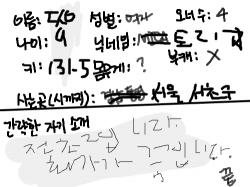 이름: 성별: 여자 오너수: 4
나이: 9 닉네임: 토리
키: 131.5 몸무게: ? 부캐: X
사는곳(시까지): 서울 서초구
간략한 자기 소개
전 입니다.
화가가 꿈입니다.
끝